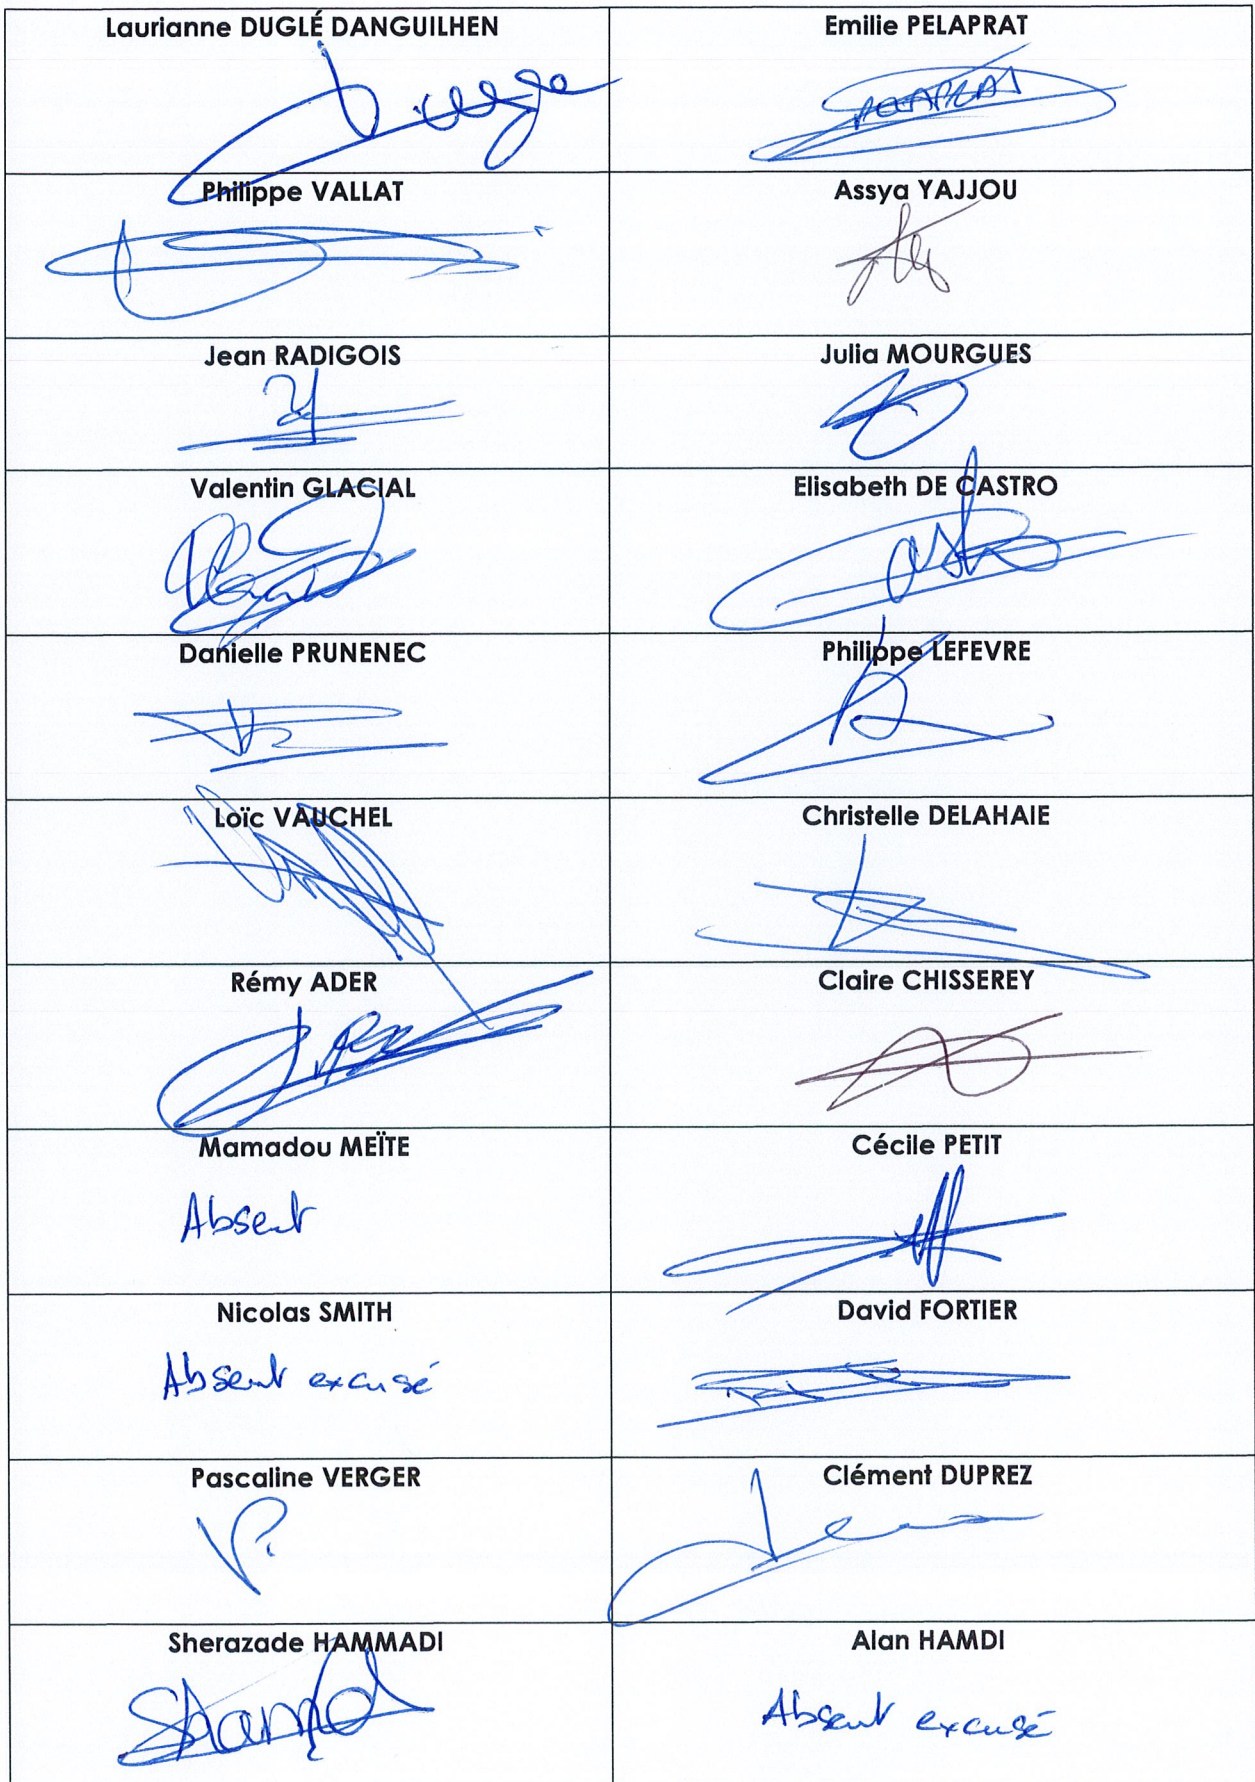 Laurianne DUGLÉ DANGUILHEN
Emilie PELAPRAT
PELAPRAT
Philippe VALLAT
Assya YAJJOU
Jean RADIGOIS
Julia MOURGUES
Valentin GLACIAL
Elisabeth DE CASTRO
Danielle PRUNENEC
Philippe LEFEVRE
Loïc VAUCHEL
Christelle DELAHAIE
Rémy ADER
Claire CHISSEREY
Mamadou MEÏTE
Absent
Cécile PETIT
Nicolas SMITH
Absent excusé
David FORTIER
Pascaline VERGER
Clément DUPREZ
Sherazade HAMMADI
Alan HAMDI
Absent excusé